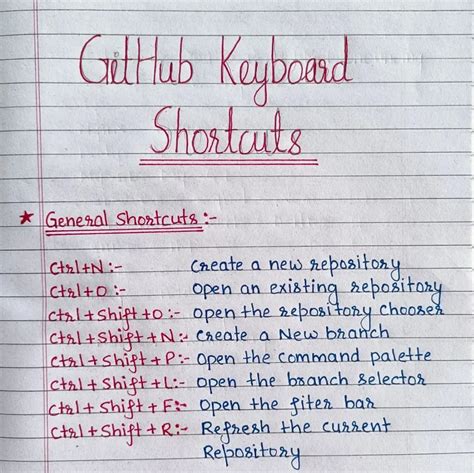 GitHub Keyboard
Shortcuts
★ General Shortcuts :-
Ctrl+N :- Create a new repository
Ctrl+O :- Open an existing repository
Ctrl + Shift + O :- open the repository chooser
Ctrl + Shift + N :- Create a New branch
Ctrl + Shift + P :- Open the command palette
Ctrl + Shift + L :- Open the branch selector
Ctrl + Shift + F :- Open the fiter bar
Ctrl + Shift + R :- Refresh the current
Repository